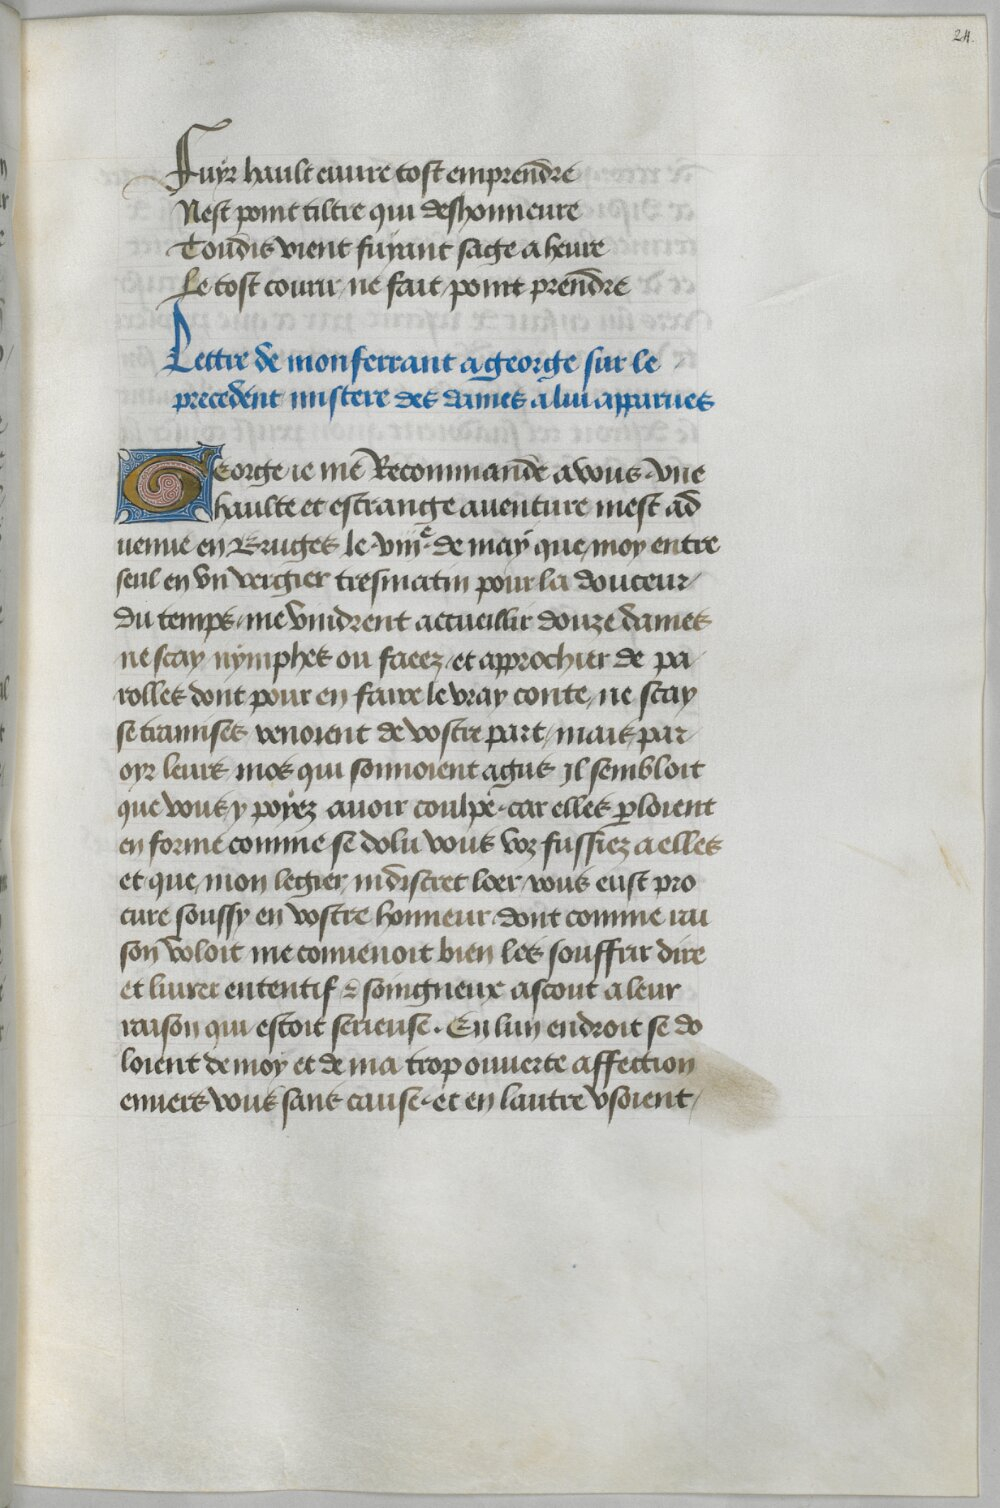 24.
Fuyr hault euure tost emprendre
Nest point tiltre qui deshonneure
Toudis vient fuyant sage a heure
Le tost courir ne fait point prendre
Lettre de monferrant a george sur le
precedent mistere des dames a lui apparues
George ie me Recommande a vous. Vne
haulte et estrange auenture mest ad
uenue en Bruges le .viije. de may que moy entre
seul en vn vergier tresmatin pour la douceur
du temps, me vindrent accueillir douze dames
ne scay nymphes ou faeez, et approchier de pa
rolles dont pour en faire le vray conte, ne scay
se tramises venoient de vostre part, mais par
oyr leurs mos qui sonnoient agus Jl sembloit
que vous y poyez auoir coulpe. car elles ploient
en forme comme se dolu vous voz fussiez a elles
et que mon legier indiscret loer vous eust pro
cure soussy en vostre honneur dont comme rai
son voloit me conuenoit bien les souffrir dire
et liurer ententif & soingneux ascout a leur
raison qui estoit serieuse. En lun endroit se do
loient de moy et de ma trop ouuerte affection
enuers vous sans cause. et en lautre vsoient